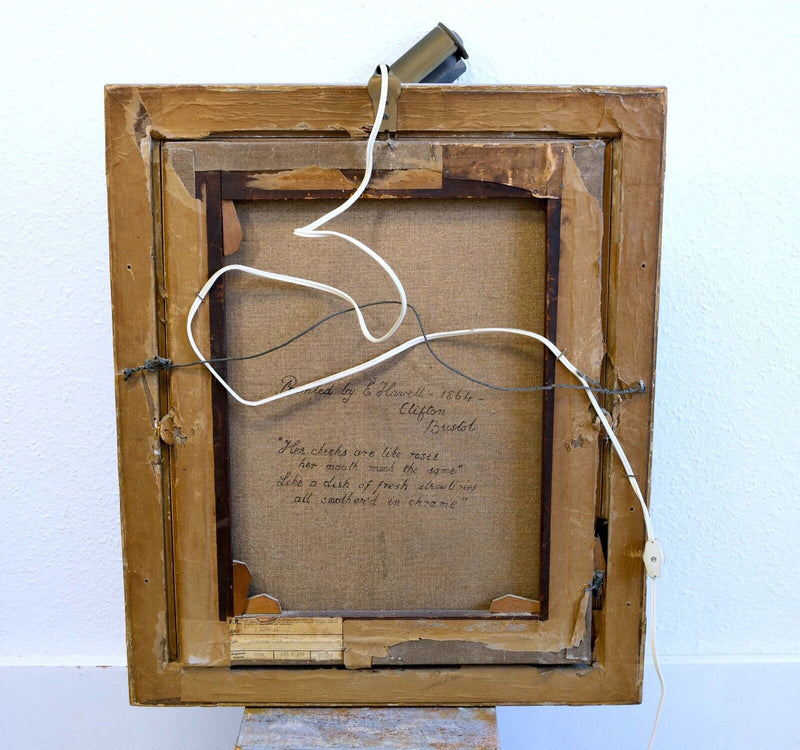 Painted by E Havell - 1864 -
Clifton
Bristol
"Her cheeks are like roses
her mouth much the same"
Like a dish of fresh strawb'ries
all smother'd in chrame"